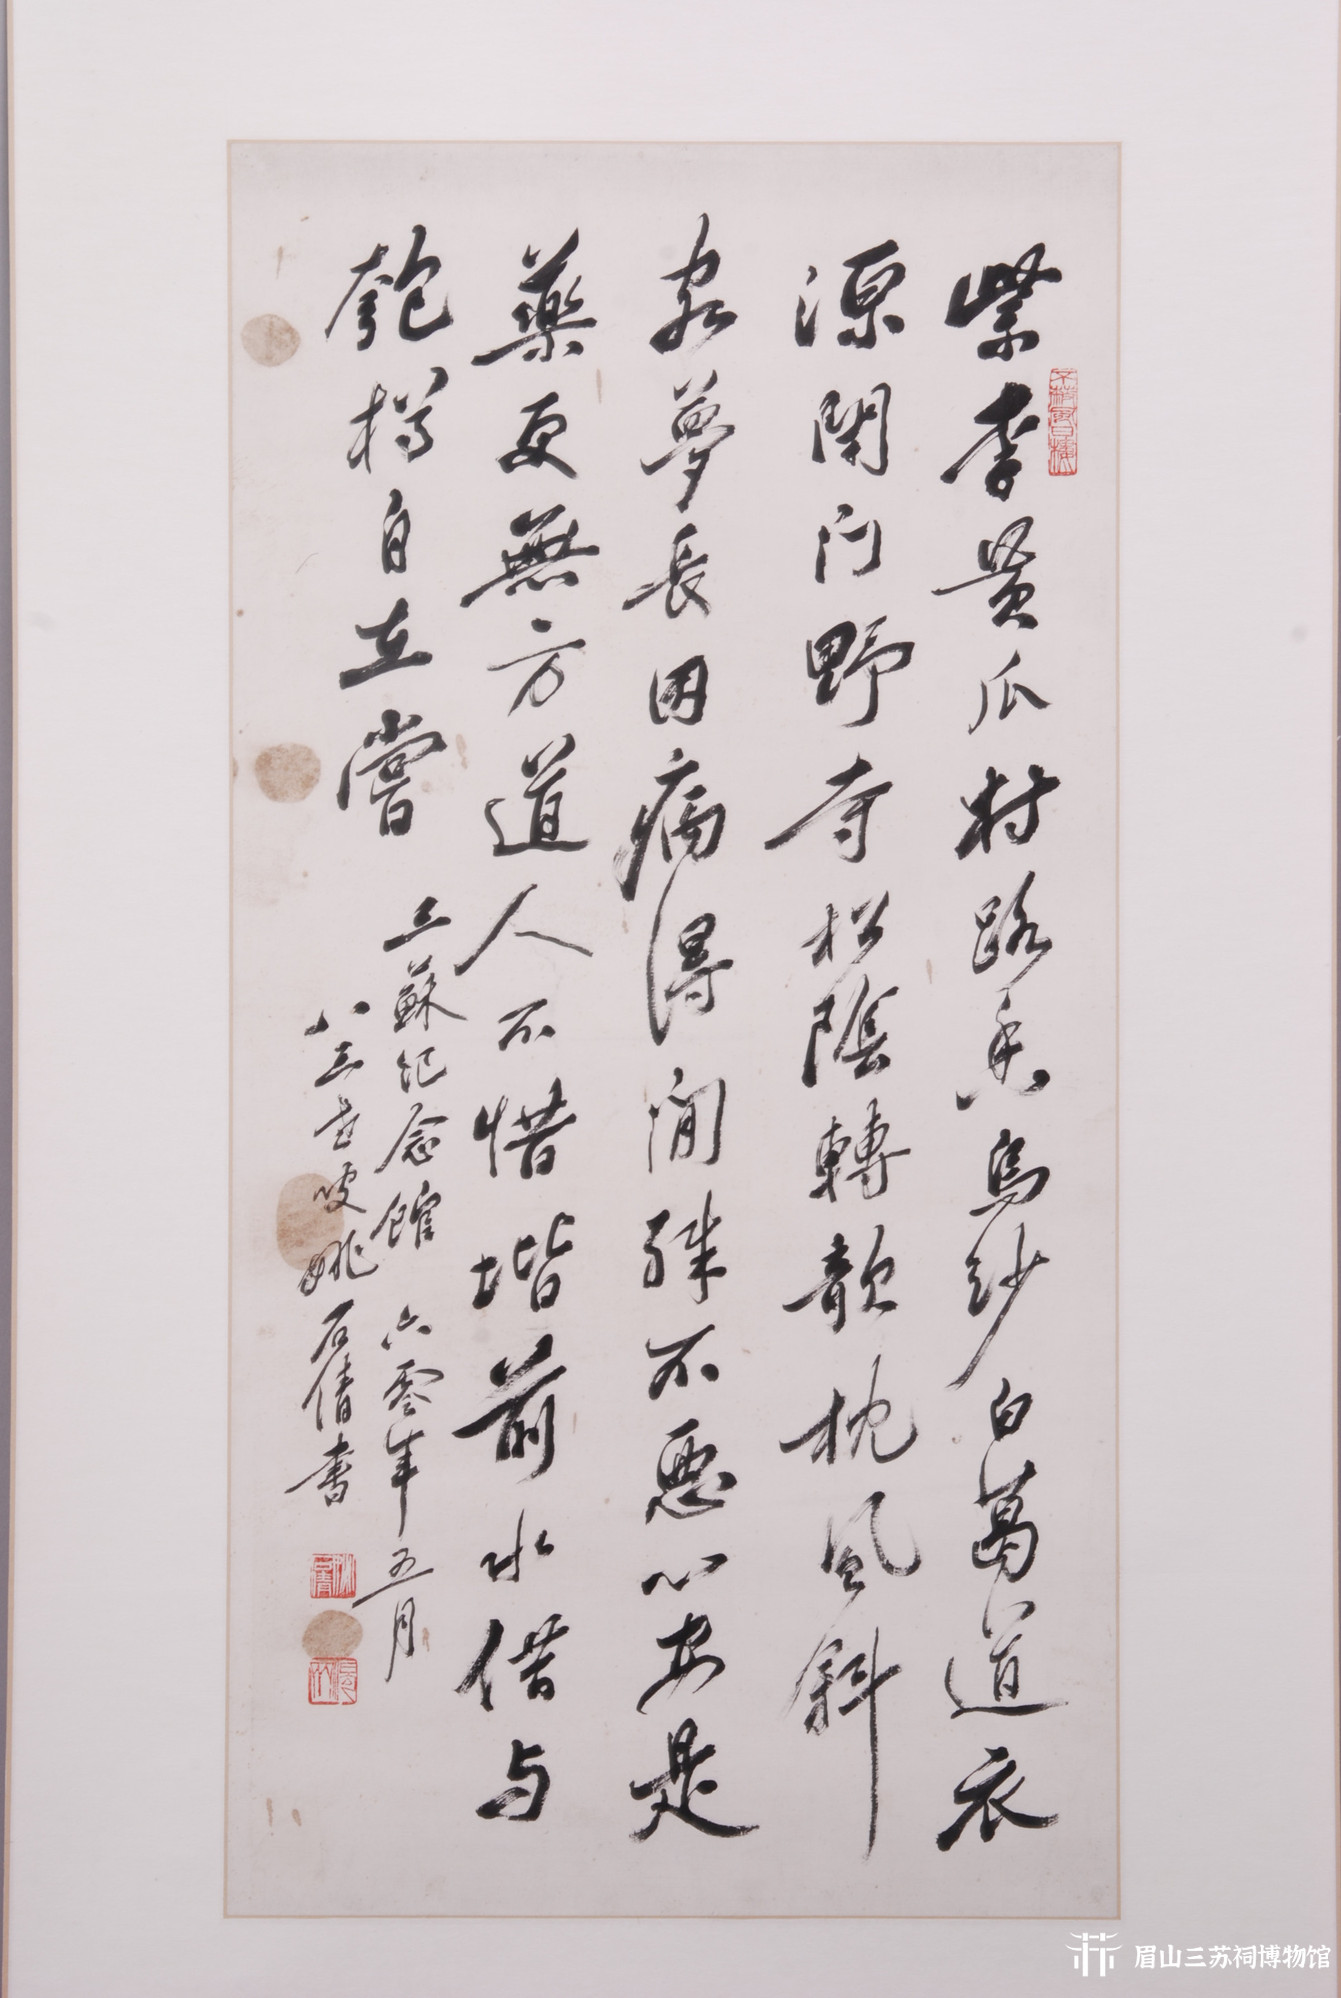 紫李黃瓜村路香烏紗白葛道衣
涼閉门野寺松陰轉欹枕風斜
客夢長因病得閒殊不惡心安是
藥更無方道人不惜堦前水借与
匏樽自在嘗
三蘇紀念館 六零年五月
八三老叟姚石倩書
眉山三苏祠博物馆